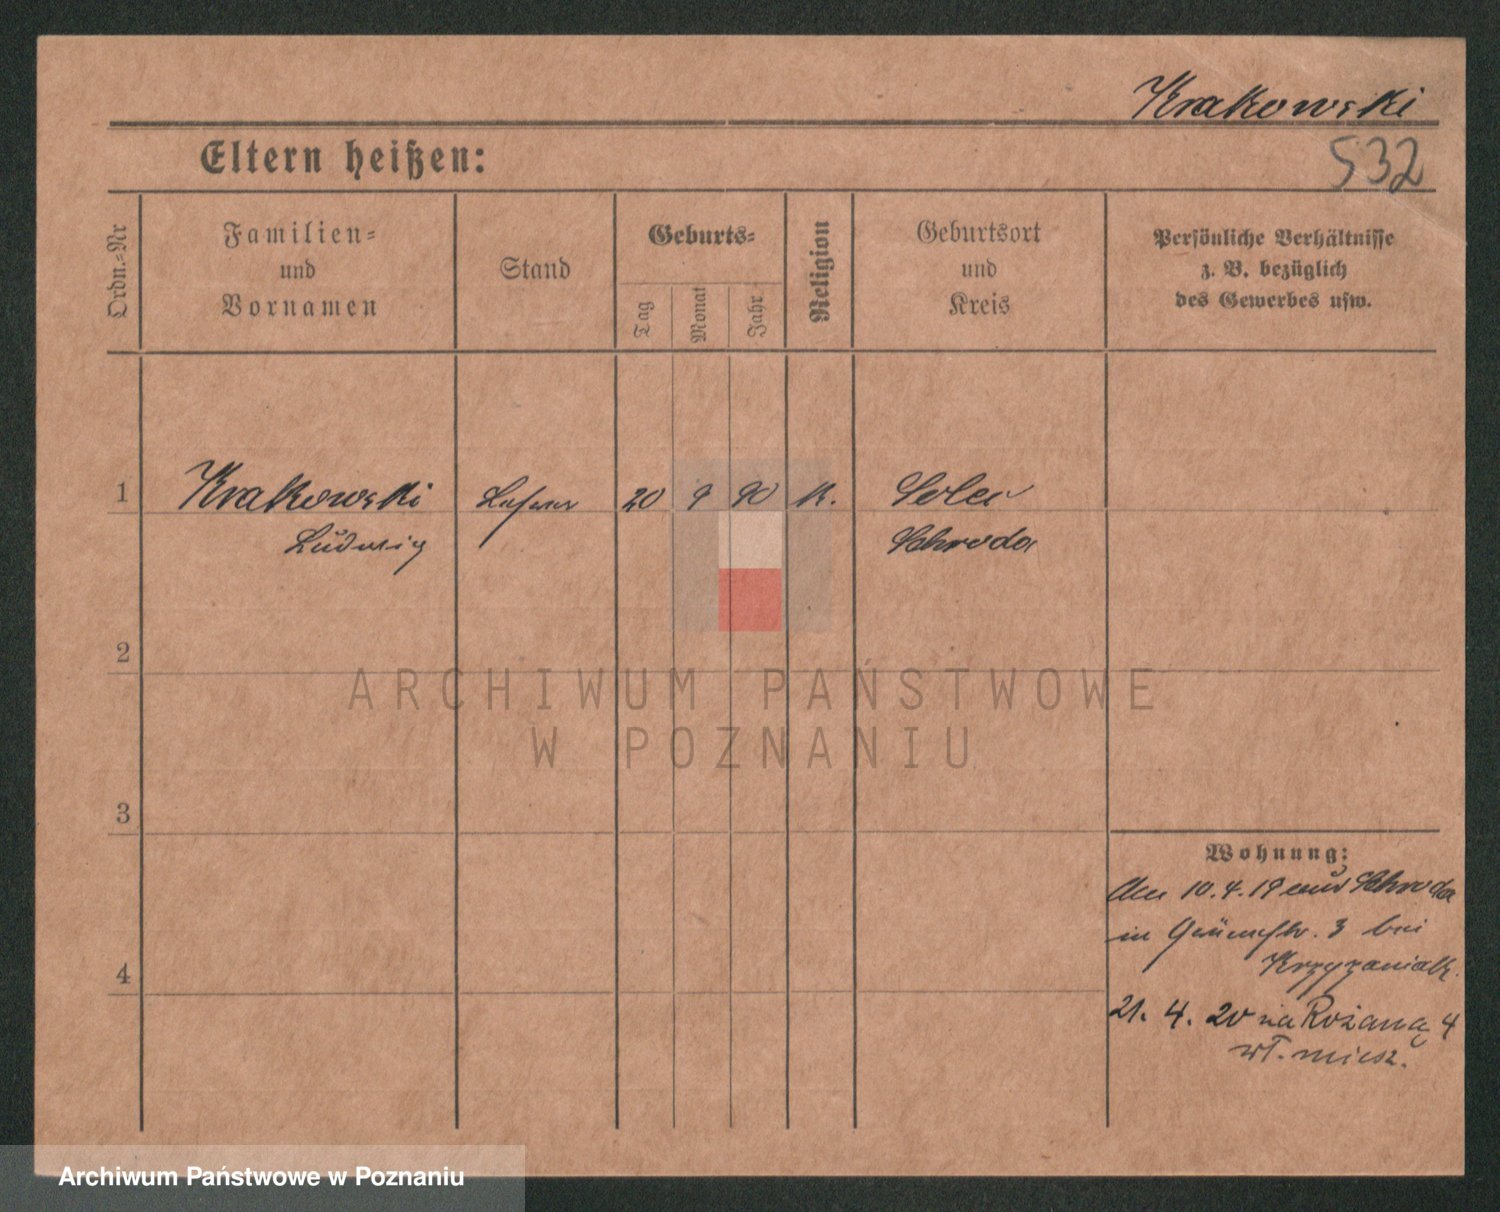 Krakowski
532
Eltern heißen:
Ordn.-Nr
Familien-
und
Vornamen
Stand
Geburts-
Tag
Monat
Jahr
Religion
Geburtsort
und
Kreis
Persönliche Verhältnisse
z. B. bezüglich
des Gewerbes usw.
1 Krakowski Lehrer 20 9 90 K. Solec
Ludwig Schroda
2
3
4
Wohnung:
Am 10.4.19 aus Schroda
in 3 bei
Krzyzaniak.
21. 4. 20 na Różaną 4
wł. miesz.
ARCHIWUM PAŃSTWOWE
W POZNANIU
Archiwum Państwowe w Poznaniu